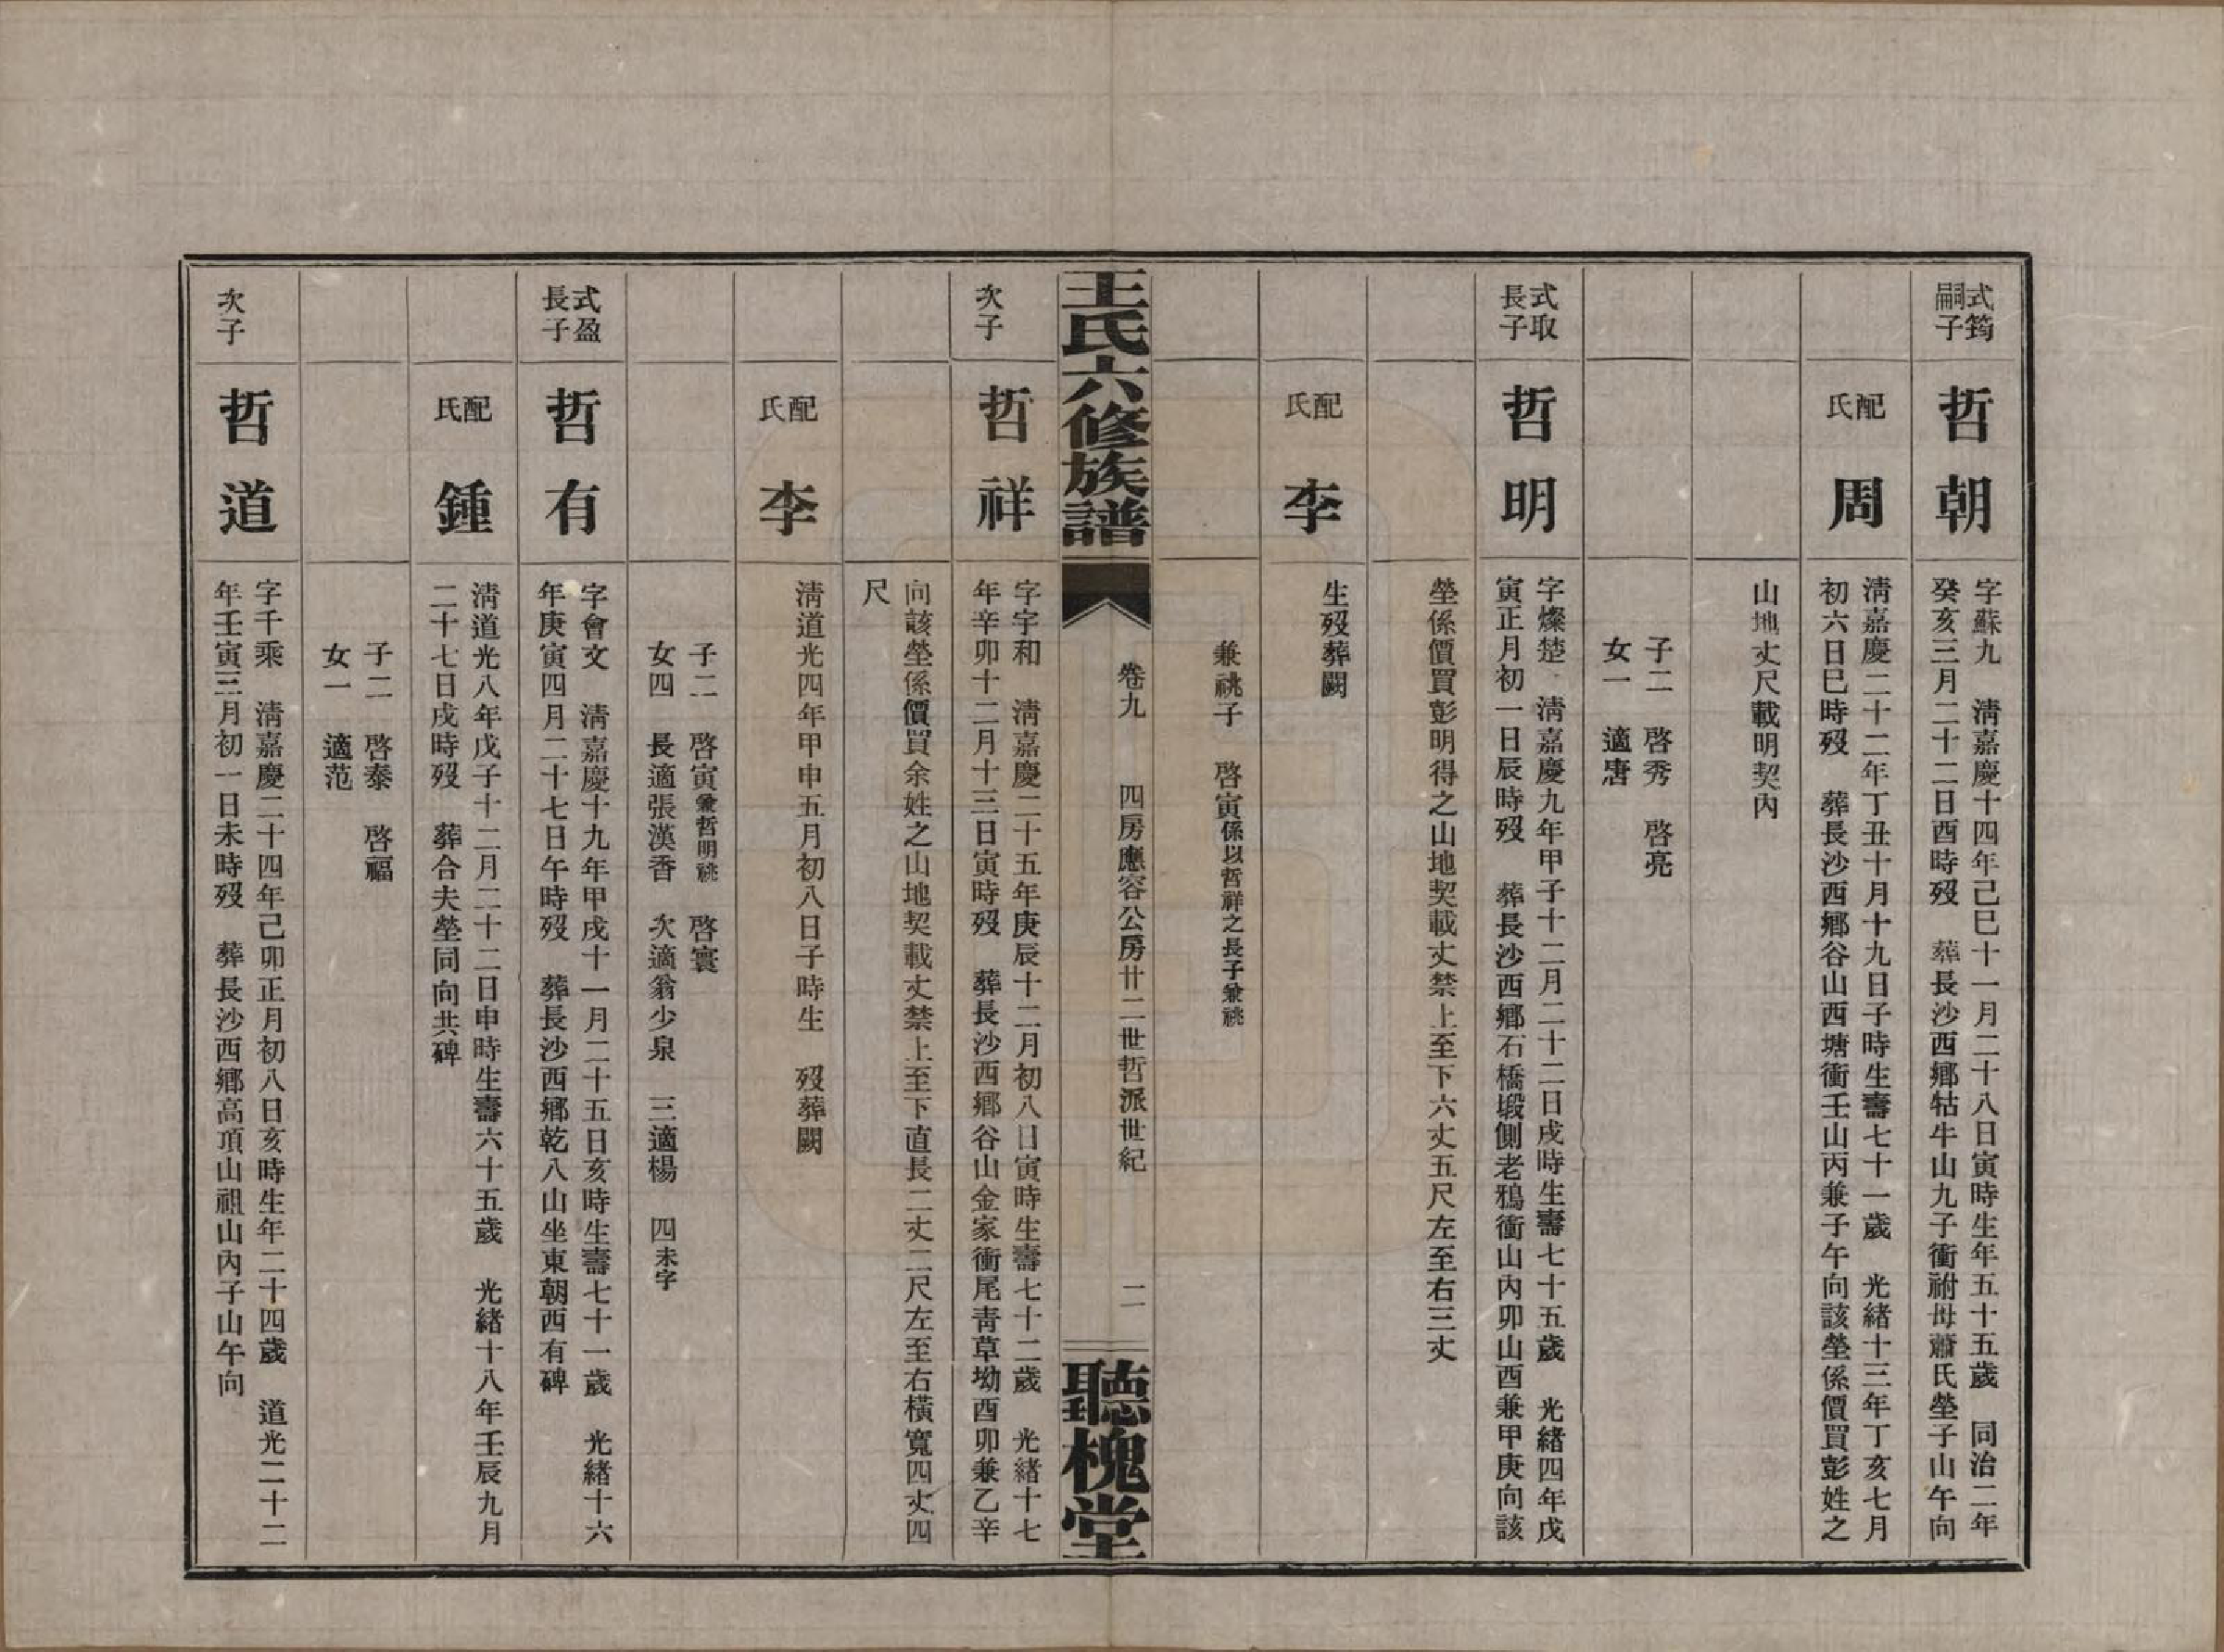 式筠
嗣子
哲朝
字蘇九　淸嘉慶十四年己巳十一月二十八日寅時生年五十五歲　同治二年
癸亥三月二十二日酉時歿　葬長沙西鄉牯牛山九子衝祔母蕭氏塋子山午向
配
氏
周
淸嘉慶二十二年丁丑十月十九日子時生壽七十一歲　光緖十三年丁亥七月
初六日巳時歿　葬長沙西鄉谷山西塘衝壬山丙兼子午向該塋係價買彭姓之
山地丈尺載明契內
子二　啓秀　啓亮
女一　適唐
式取
長子
哲明
字燦楚　淸嘉慶九年甲子十二月二十二日戌時生壽七十五歲　光緖四年戊
寅正月初一日辰時歿　葬長沙西鄉石橋塅側老鴉衝山內卯山酉兼甲庚向該
塋係價買彭明得之山地契載丈禁上至下六丈五尺左至右三丈
配
氏
李
生歿葬闕
兼祧子　啓寅係以哲祥之長子兼祧
王氏六修族譜
卷九　四房應容公房廿二世哲派世紀　二
聽槐堂
次子
哲祥
字字和　淸嘉慶二十五年庚辰十二月初八日寅時生壽七十二歲　光緖十七
年辛卯十二月十三日寅時歿　葬長沙西鄉谷山金家衝尾靑草坳酉卯兼乙辛
向該塋係價買余姓之山地契載丈禁上至下直長二丈二尺左至右橫寬四丈四
尺
配
氏
李
淸道光四年甲申五月初八日子時生　歿葬闕
子二　啓寅兼哲明祧　啓寰
女四　長適張漢香　次適翁少泉　三適楊　四未字
式盈
長子
哲有
字會文　淸嘉慶十九年甲戌十一月二十五日亥時生壽七十一歲　光緖十六
年庚寅四月二十七日午時歿　葬長沙西鄉乾八山坐東朝西有碑
配
氏
鍾
淸道光八年戊子十二月二十二日申時生壽六十五歲　光緖十八年壬辰九月
二十七日戌時歿　葬合夫塋同向共碑
子二　啓泰　啓福
女一　適范
次子
哲道
字千乘　淸嘉慶二十四年己卯正月初八日亥時生年二十四歲　道光二十二
年壬寅三月初一日未時歿　葬長沙西鄉高頂山祖山內子山午向